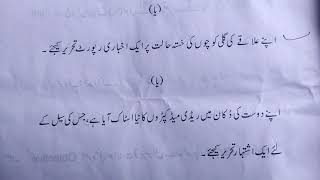 (یا)
اپنے علاقے کی گلی کوچوں کی خستہ حالت پر ایک اخباری رپورٹ تحریر کیجئے۔
(یا)
اپنے دوست کی دُکان میں ریڈی میڈ کپڑوں کا نیا اسٹاک آیا ہے، جس کی سیل کے
لئے ایک اشتہار تحریر کیجئے۔